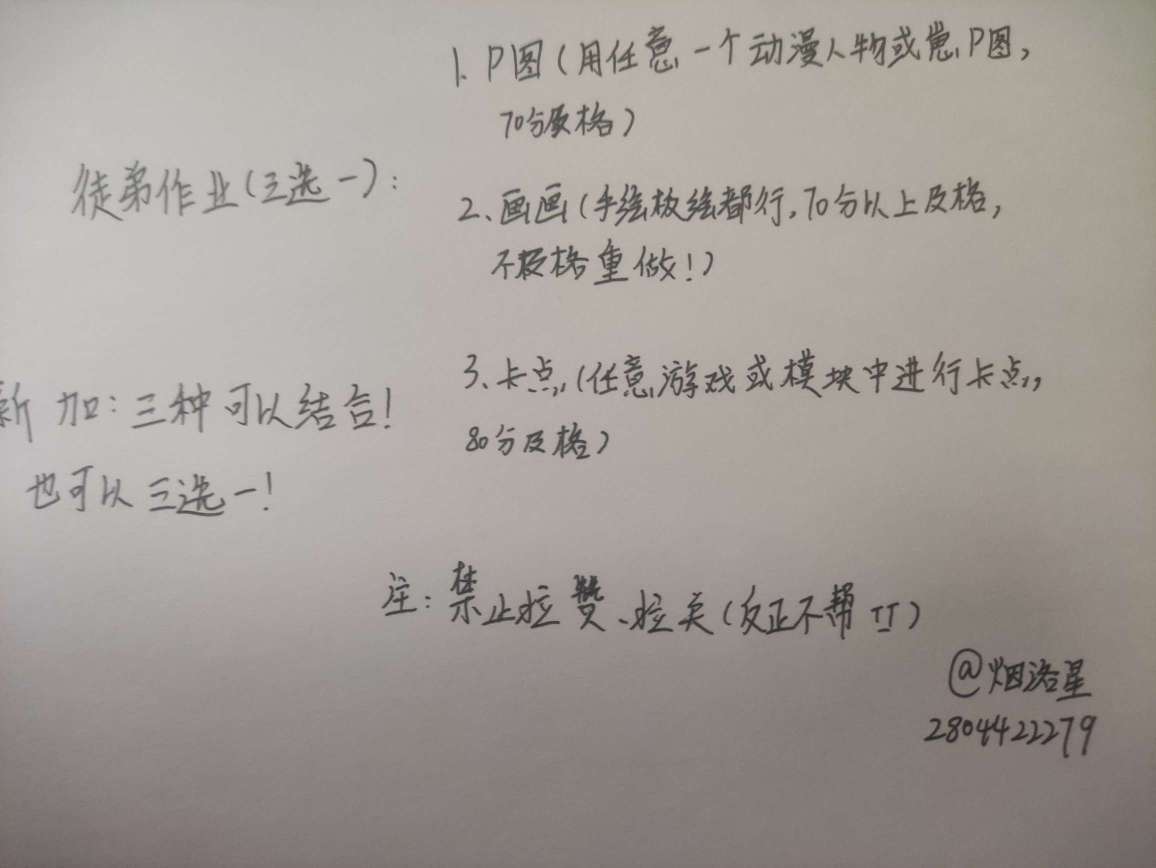 徒弟作业(三选一):
1、P图(用任意一个动漫人物或崽P图,
70分及格)
2、画画(手绘板绘都行,70分以上及格,
不及格重做!)
3、卡点(任意游戏或模块中进行卡点,
80分及格)
新加:三种可以结合!
也可以三选一!
注:禁止拉赞、拉关(反正不帮TT)
@烟洛星
2804422279